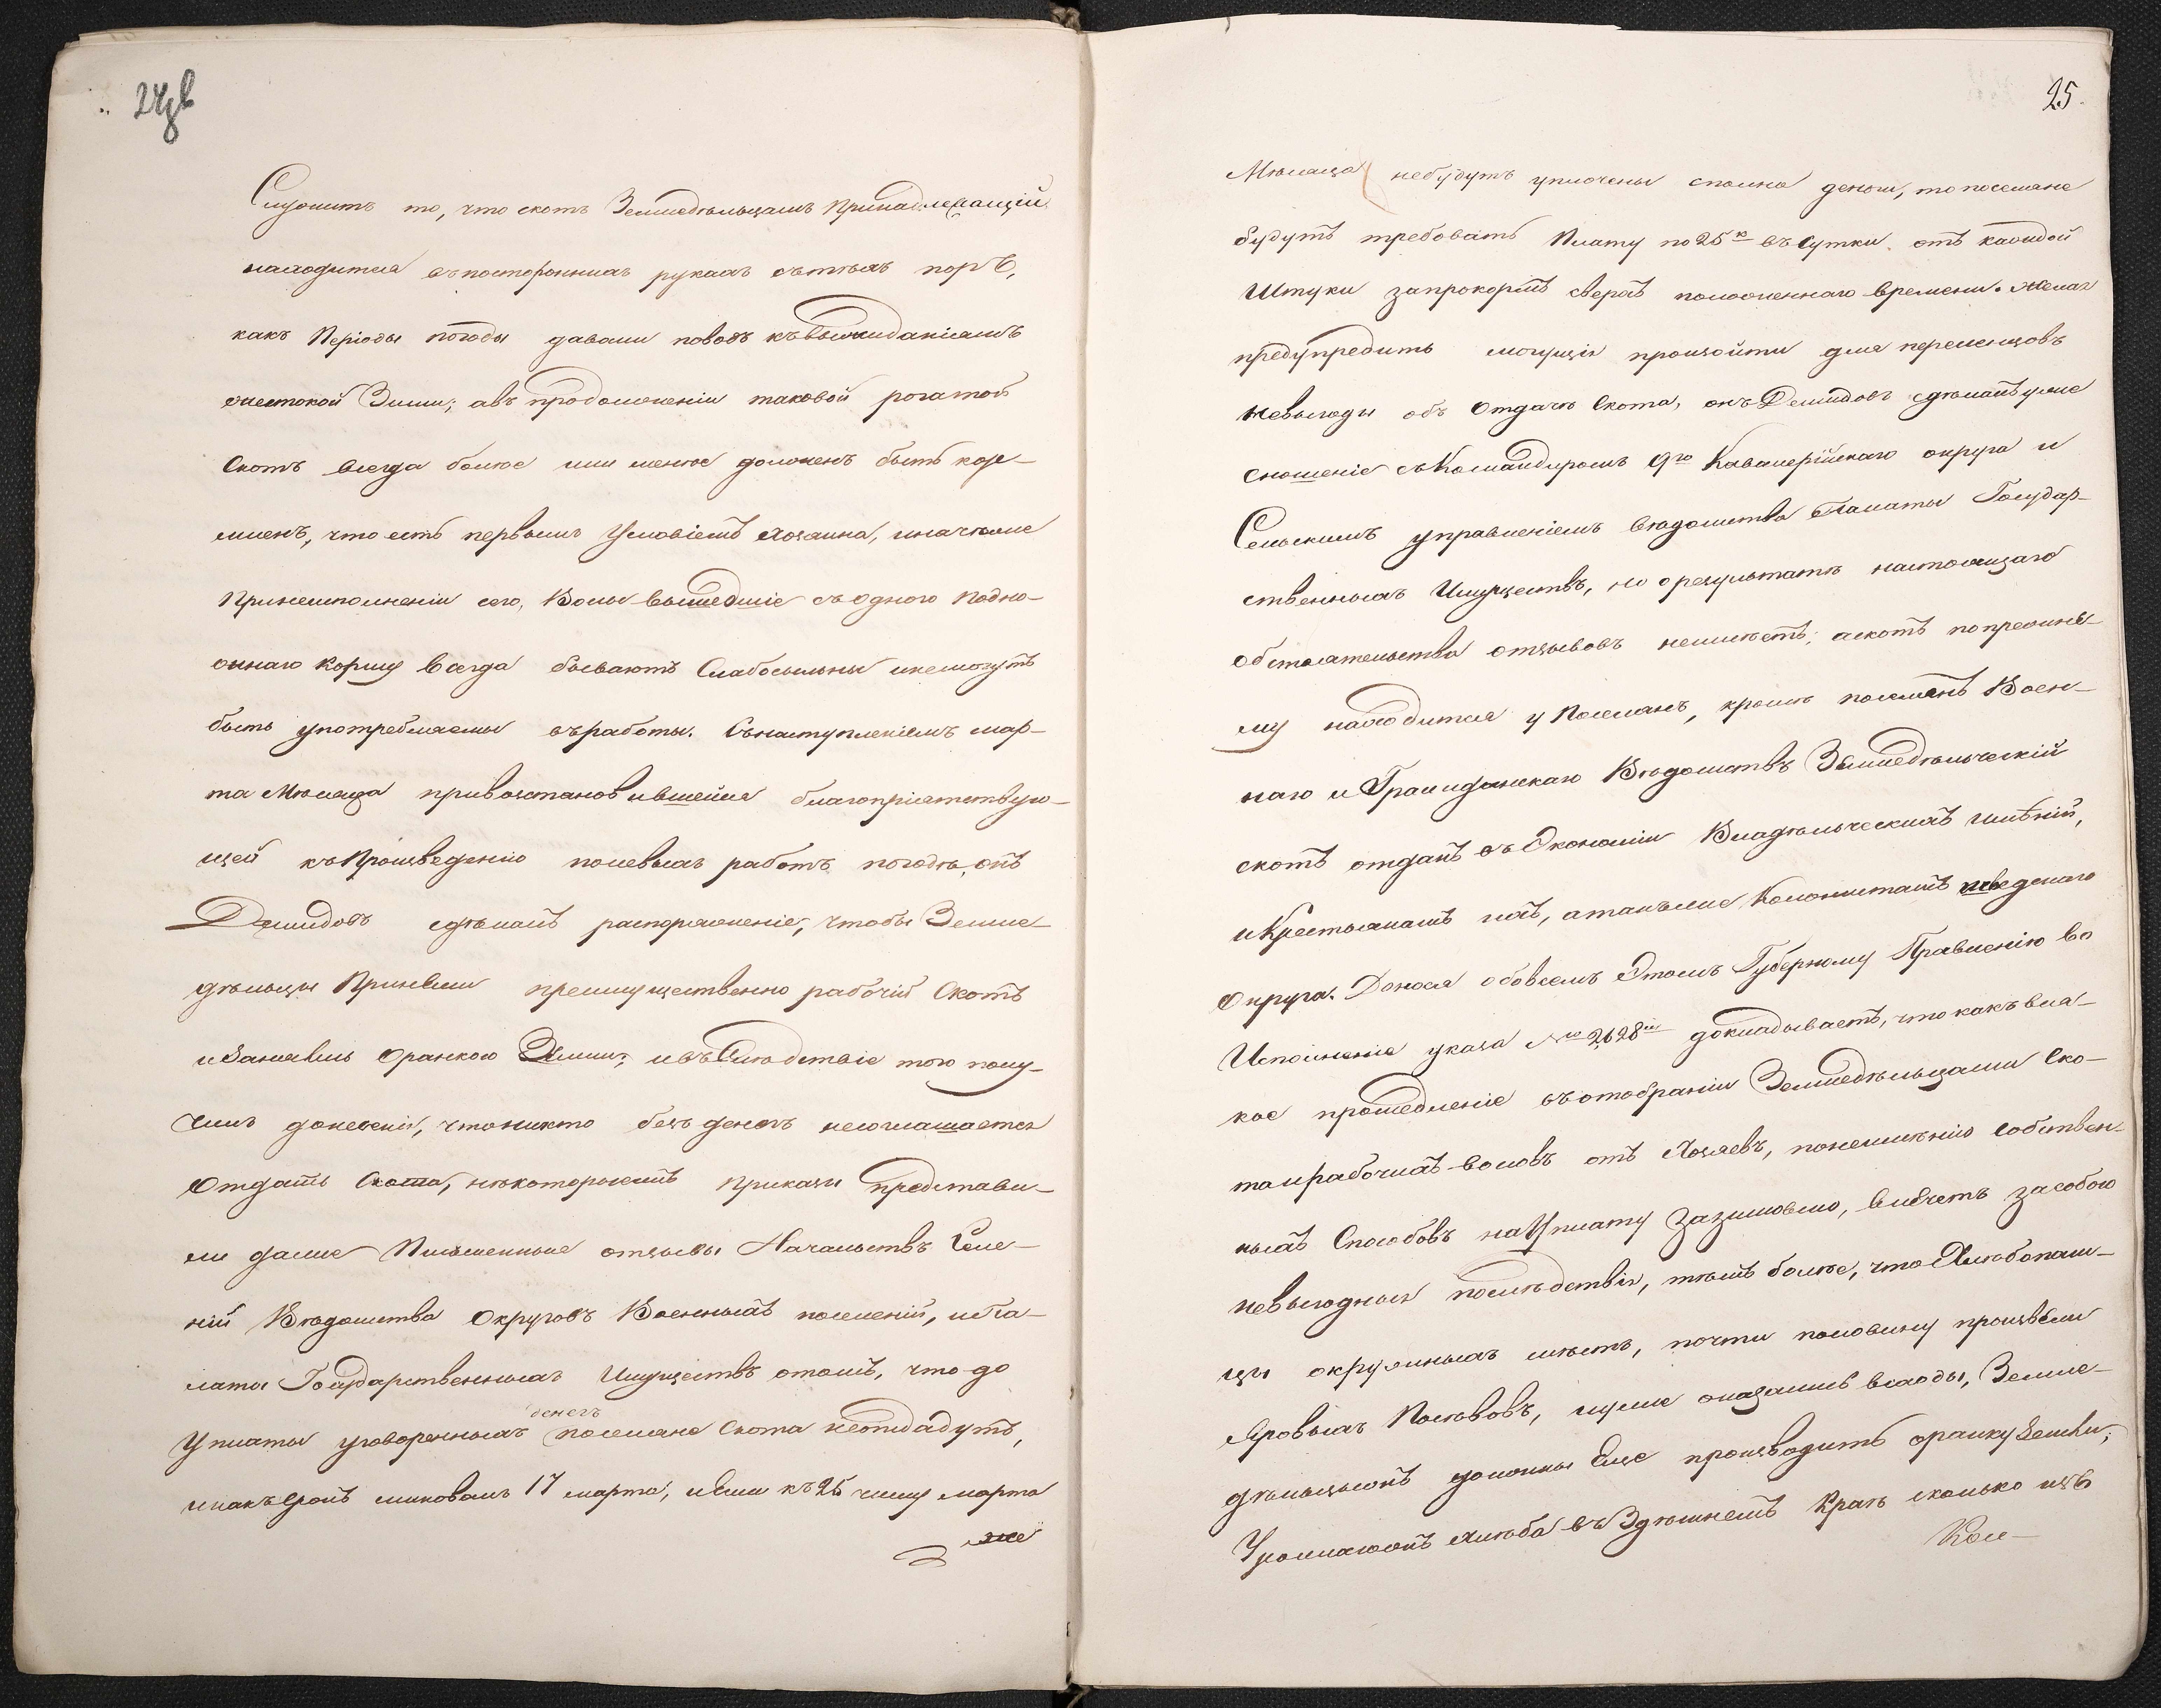 24об
Служитъ то, что скотъ Земледѣльцамъ принадлежащій
находится въ постороннихъ рукахъ съ тѣхъ поръ,
какъ Періоды погоды давали поводъ къ выжиданіямъ
жестокой Зимы; а въ продолженіи таковой рогатой
Скотъ всегда болѣе или менѣе долженъ быть кор-
мленъ, что есть первымъ Условіемъ хозяина, иначе же
при неисполненіи сего, Волы вышедшіе съ одного Подно-
жнаго Корму всегда бываютъ Слабосильны и не могутъ
быть употребляемы въ работы. Съ наступленіемъ мар-
та Мѣсяца при возстановившейся благопріятствую-
щей къ Произведенію полевыхъ работъ погодѣ, онъ
Демидовъ сдѣлалъ распоряженіе, чтобы Земле-
дѣльцы Привели преимущественно рабочій Скотъ
и Занялись Оранкою Земли; и въ Слѣдствіе того полу-
чилъ донесенія, что никто безъ денегъ не соглашается
Отдать Скота, нѣкоторые изъ Приказы представи-
ли даже Письменные отзывы Начальствъ Селе-
ній Вѣдомства Округовъ Военныхъ поселеній, и Па-
латы Государственныхъ Имуществъ о томъ, что до
Уплаты уговоренныхъ денегъ поселяне Скота не отдадутъ,
и какъ Срокъ миновалъ 17 марта, и Если къ 25 числу марта
же
25.
Мѣсяца не будутъ уплочены сполна деньги, то поселяне
будутъ требовать Плату по 25 к въ Сутки отъ каждой
Штуки за прокормъ сверхъ положеннаго времени. Желая
предупредить могущія произойти для переселенцовъ
Невыгоды объ Отдачѣ Скота, онъ Демидовъ сдѣлалъ уже
сношеніе съ Командиромъ 9го Кавалерійскаго округа и
Сельскимъ управленіемъ Вѣдомства Палаты Государ-
ственныхъ Имуществъ, но о результатѣ настоящаго
обстоятельства отзывовъ не имѣетъ; а скотъ по прежне-
му находится у Поселянъ, кромѣ поселянъ Воен-
наго и Гражданскаго Вѣдомствъ Земледѣльческій
скотъ отданъ въ Экономіи Владѣльческихъ имѣній,
и Крестьянамъ ихъ, а также Колонистамъ шведскаго
Округа. Донося о всемъ Этомъ Губернскому Правленію во
Исполненіе указа № 2628 докладываетъ, что какъ вся-
кое промедленіе въ отобраніи Земледѣльцами Ско-
та и рабочихъ воловъ отъ Хозяевъ, по неимѣнію Собствен-
ныхъ Способовъ на Уплату за зимовлю, влечетъ за собою
невыгодныя послѣдствія, тѣмъ болѣе, что Хлѣбопаш-
цы окружныхъ мѣстъ, почти половину произвели
Яровыхъ Посѣвовъ, и уже оказались всходы, Земле-
дѣльцы же должны Еще производить оранку Земли;
Урожаи же хлѣба въ Здѣшнемъ Краѣ сколько изъ
Кол-